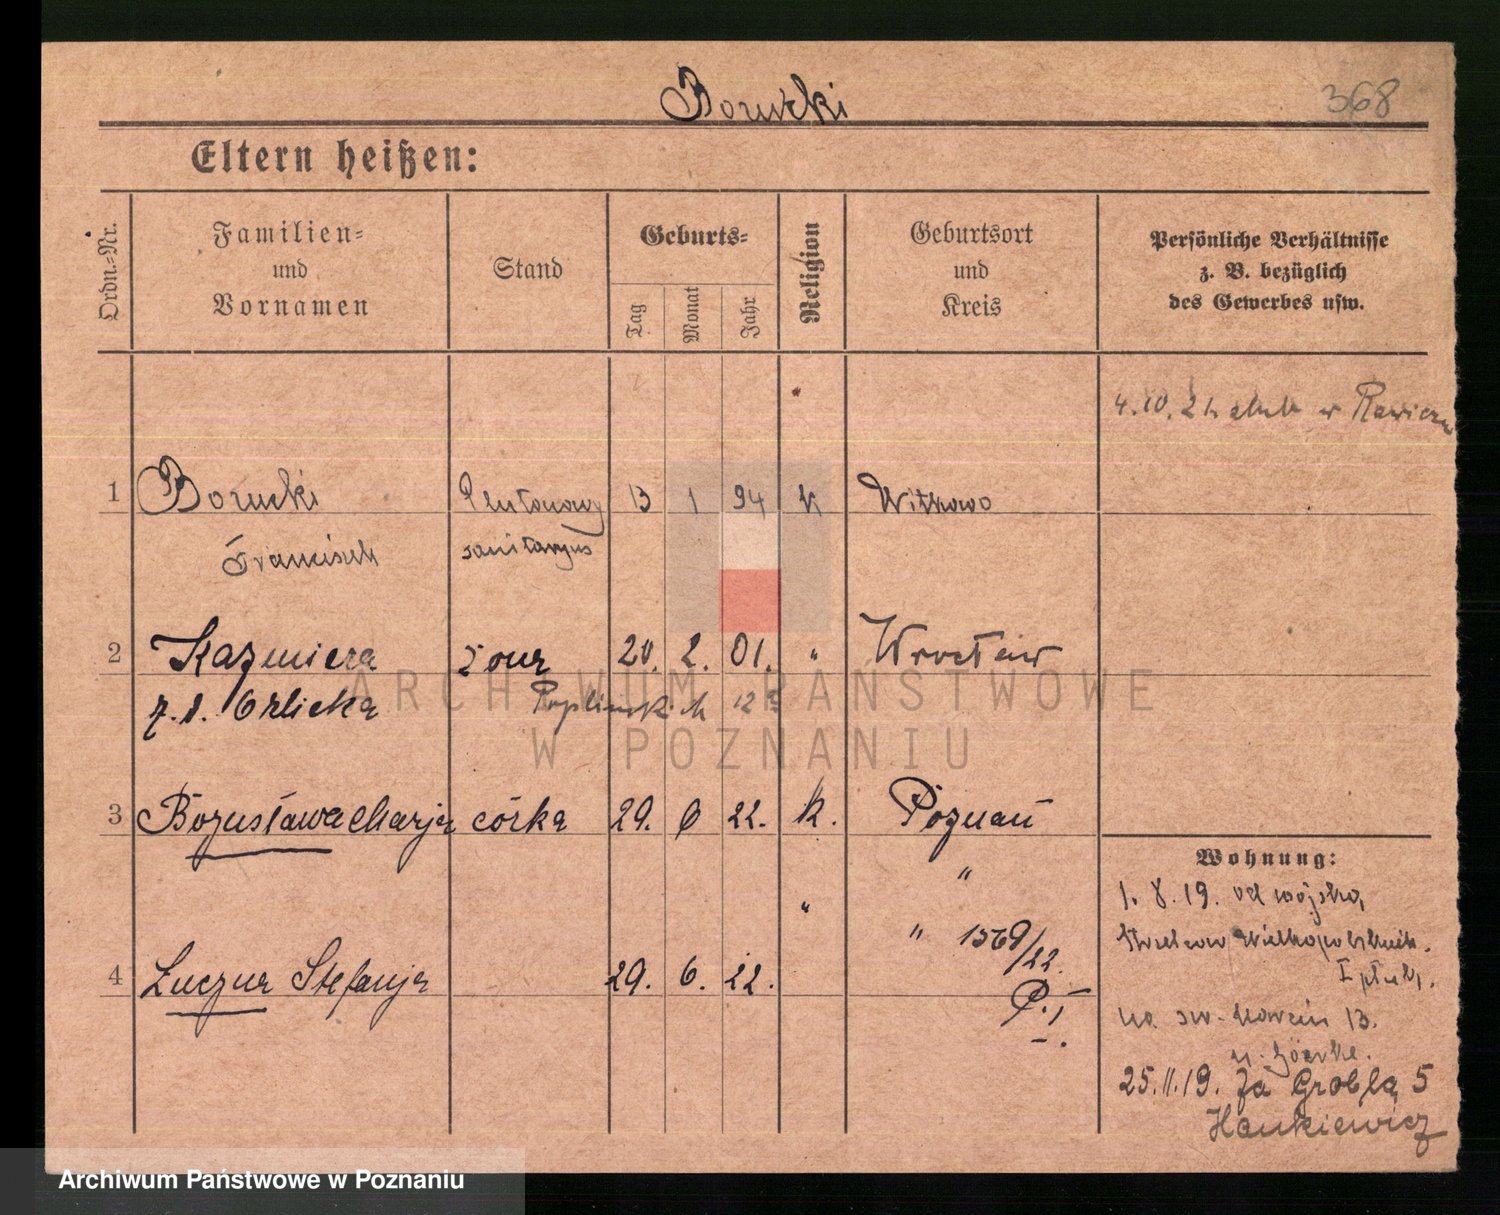 Borucki
368
Eltern heißen:
Ordn.-Nr.
Familien-
und
Vornamen
Stand
Geburts-
Tag
Monat
Jahr
Religion
Geburtsort
und
Kreis
Persönliche Verhältnisse
z. B. bezüglich
des Gewerbes usw.
4.10.21 ślub w Rawiczu
1 Borucki Plutonowy 13 1 94 K Witkowo
Franciszek sanitarjus
2 Kazmiera żona 20. 2. 01. " Wrocław
z.d. Orlicka
3 Bogusława Marja córka 29. 6 22. k. Poznań
"
"
4 Lucyna Stefanja 29. 6. 22. " 1569/22.
P. I
Wohnung:
1. 8. 19. od wojska,
I pułk,
na św. Marcin 13.
25.11.19. Za Groblą 5
Hankiewicz
ARCHIWUM PAŃSTWOWE
W POZNANIU
Archiwum Państwowe w Poznaniu